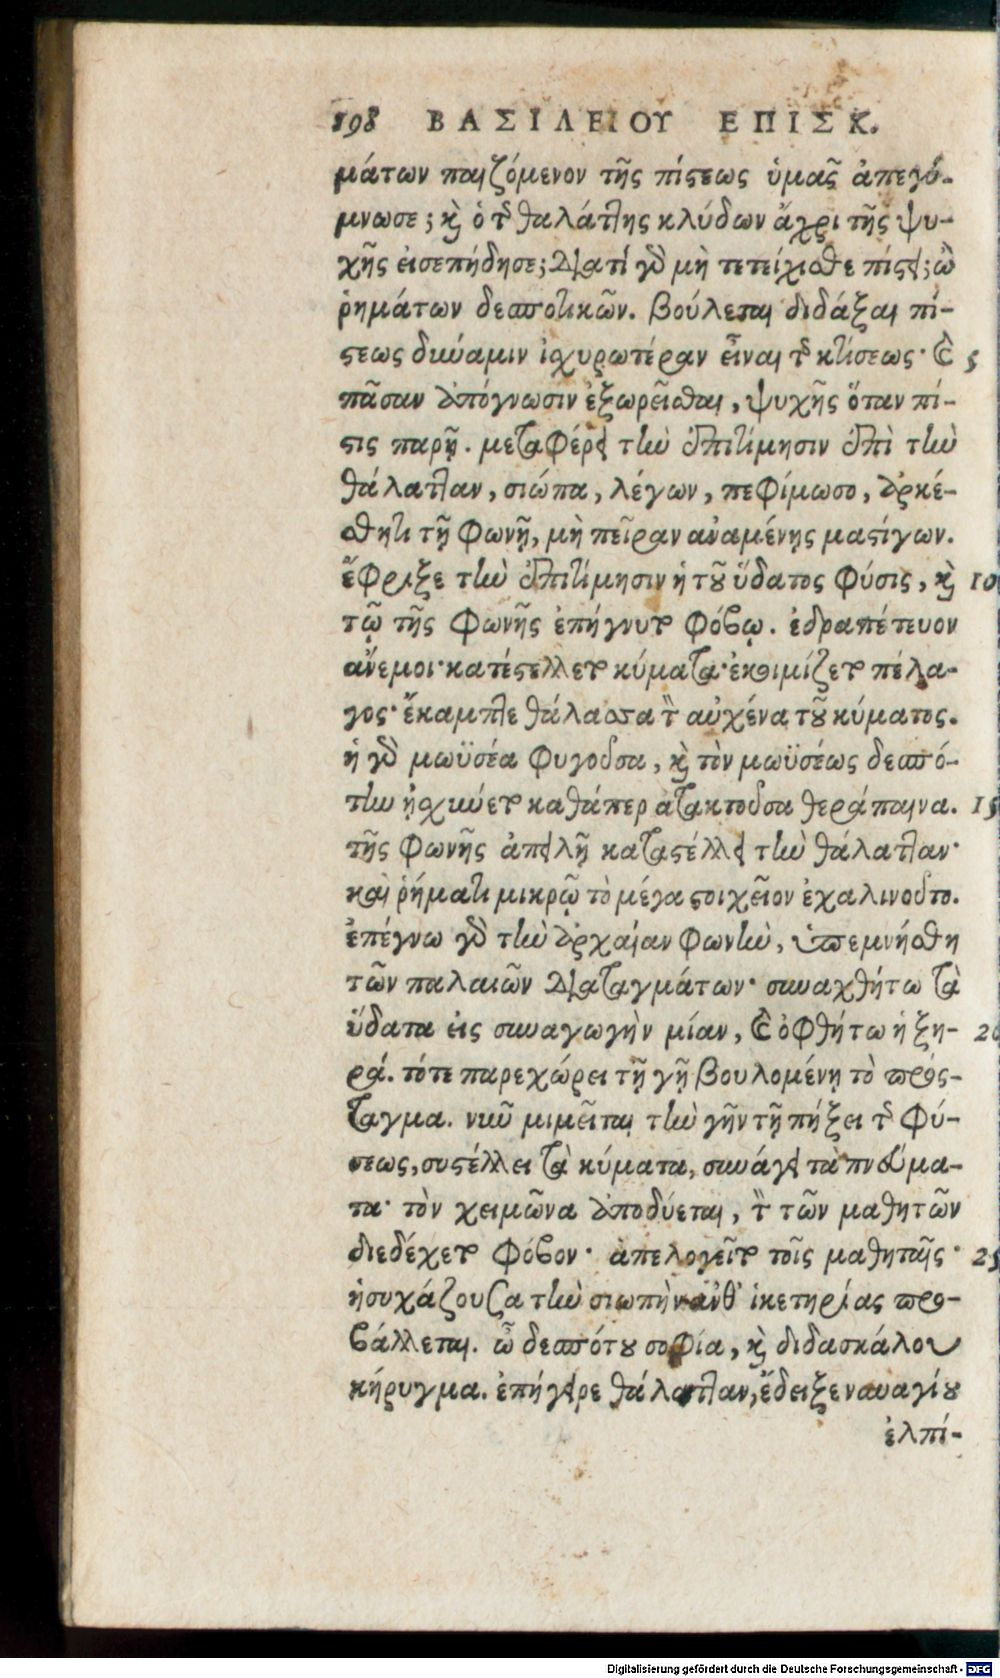 198 ΒΑΣΙΛΕΙΟΥ ΕΠΙΣΚ.
μάτων παιζόμενον τῆς πίστεως ὑμᾶς ἀπεγύ-
μνωσε; καὶ ὁ τῆς θαλάττης κλύδων ἄχρι τῆς ψυ-
χῆς εἰσεπήδησε; διατί γὰρ μὴ τετείχισθε πίστει; ὢ
ῥημάτων δεσποτικῶν. βούλεται διδάξαι πί-
στεως δύναμιν ἰσχυρωτέραν εἶναι τῆς κτίσεως· καὶ 5
πᾶσαν ἀπόγνωσιν ἐξωρεῖσθαι, ψυχῆς ὅταν πί-
στις παρῇ. μεταφέρει τὴν ἐπιτίμησιν ἐπὶ τὴν
θάλατταν, σιώπα, λέγων, πεφίμωσο, ἀρκέ-
σθητι τῇ φωνῇ, μὴ πεῖραν ἀναμένῃς μαστίγων.
ἔφριξε τὴν ἐπιτίμησιν ἡ τοῦ ὕδατος φύσις, καὶ 10
τῷ τῆς φωνῆς ἐπήγνυτο φόβῳ. ἐδραπέτευον
ἄνεμοι· κατέστελλετο κύματα· ἐκοιμίζετο πέλα-
γος· ἔκαμπτε θάλασσα τὸν αὐχένα τοῦ κύματος.
ἡ γὰρ μωϋσέα φυγοῦσα, καὶ τὸν μωϋσέως δεσπό-
την ᾐσχύνετο καθάπερ ἀτακτοῦσα θεράπαινα. 15
τῆς φωνῆς ἀπειλῇ καταστέλλει τὴν θάλατταν·
καὶ ῥήματι μικρῷ τὸ μέγα στοιχεῖον ἐχαλινοῦτο.
ἐπέγνω γὰρ τὴν ἀρχαίαν φωνὴν, ὑπεμνήσθη
τῶν παλαιῶν διαταγμάτων· συναχθήτω τὰ
ὕδατα εἰς συναγωγὴν μίαν, καὶ ὀφθήτω ἡ ξη- 20
ρά. τότε παρεχώρει τῇ γῇ βουλομένῃ τὸ πρόσ-
ταγμα. νῦν μιμεῖται τὴν γῆν τῇ πήξει τῆς φύ-
σεως, συστέλλει τὰ κύματα, συνάγει τὰ πνεύμα-
τα· τὸν χειμῶνα ἀποδύεται, τὸν τῶν μαθητῶν
διεδέχετο φόβον· ἀπελογεῖτο τοῖς μαθηταῖς· 25
ἡσυχάζουσα τὴν σιωπὴν ἀνθ' ἱκετηρίας προ-
βάλλεται. ὦ δεσπότου σοφία, καὶ διδασκάλου
κήρυγμα. ἐπήγειρε θάλατταν, ἔδειξε ναυαγίου
ἐλπί-
Digitalisierung gefördert durch die Deutsche Forschungsgemeinschaft - DFG